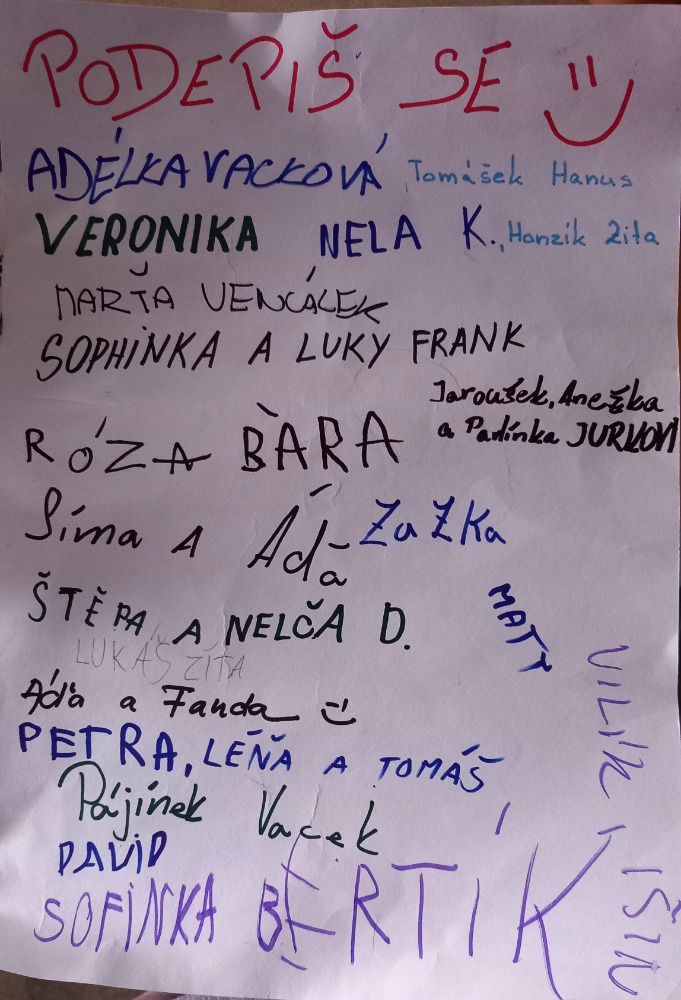 PODEPIŠ SE
ADÉLKA VACKOVÁ Tomášek Hanus
VERONIKA NELA K., Honzík Zita
MARŤA VENCÁLEK
SOPHINKA A LUKY FRANK
Jaroušek, Anežka
a Pavlínka JURKOVI
RÓZA BÁRA
Síma A Áda ZuZKa
ŠTĚPA A NELČA D.
MATY
LUKÁŠ ZÍTA
Áďa a Fanda
PETRA, LÉŇA A TOMÁŠ
VILÍK
Pájínek Vacek
DAVID
SOFINKA BERTÍK